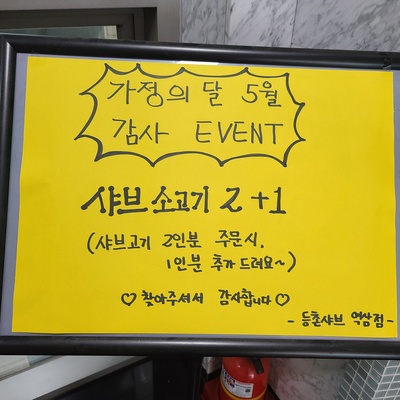 가정의 달 5월
감사 EVENT
샤브 소고기 2+1
(샤브고기 2인분 주문시,
1인분 추가 드려요~)
♡ 찾아주셔서 감사합니다 ♡
- 등촌샤브 역삼점 -